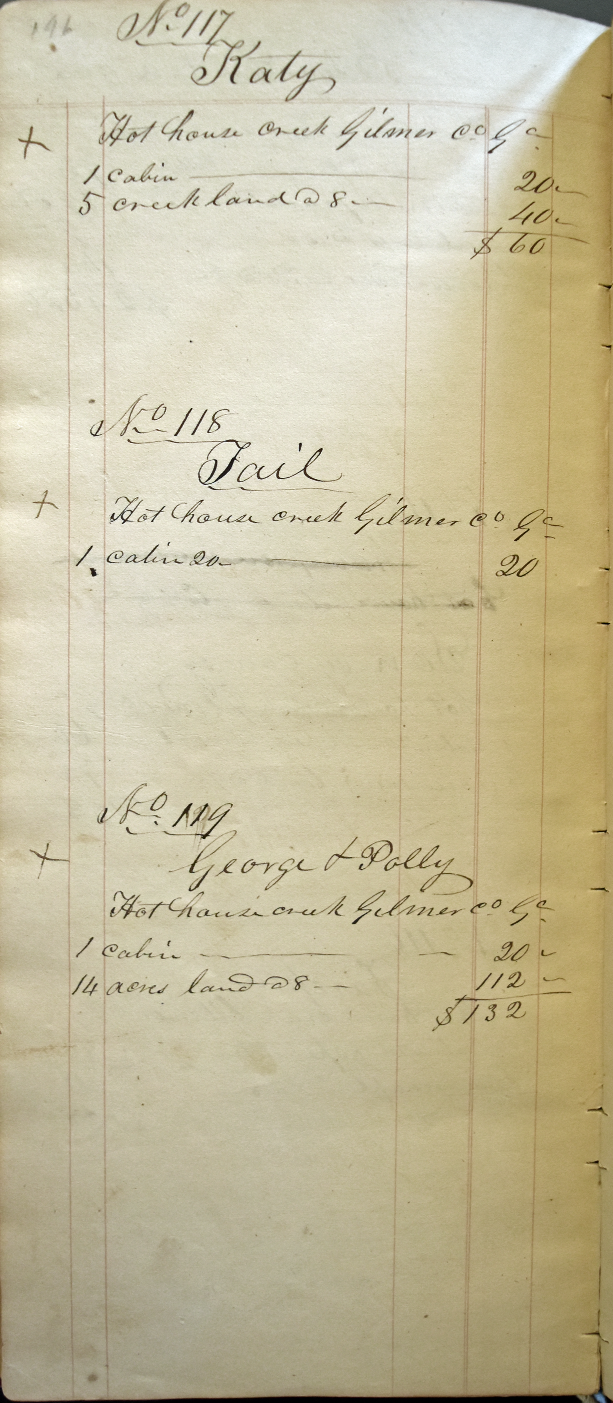 196
No 117
Katy
+ Hot house creek Gilmer co Ga
1 cabin — 20
5 creek land @ 8 — 40
$ 60
No 118
Tail
+ Hot house creek Gilmer co Ga
1 cabin 20 — 20
No 119
+ George & Polly
Hot house creek Gilmer co Ga
1 cabin — — 20
14 acres land @ 8 — 112
$ 132